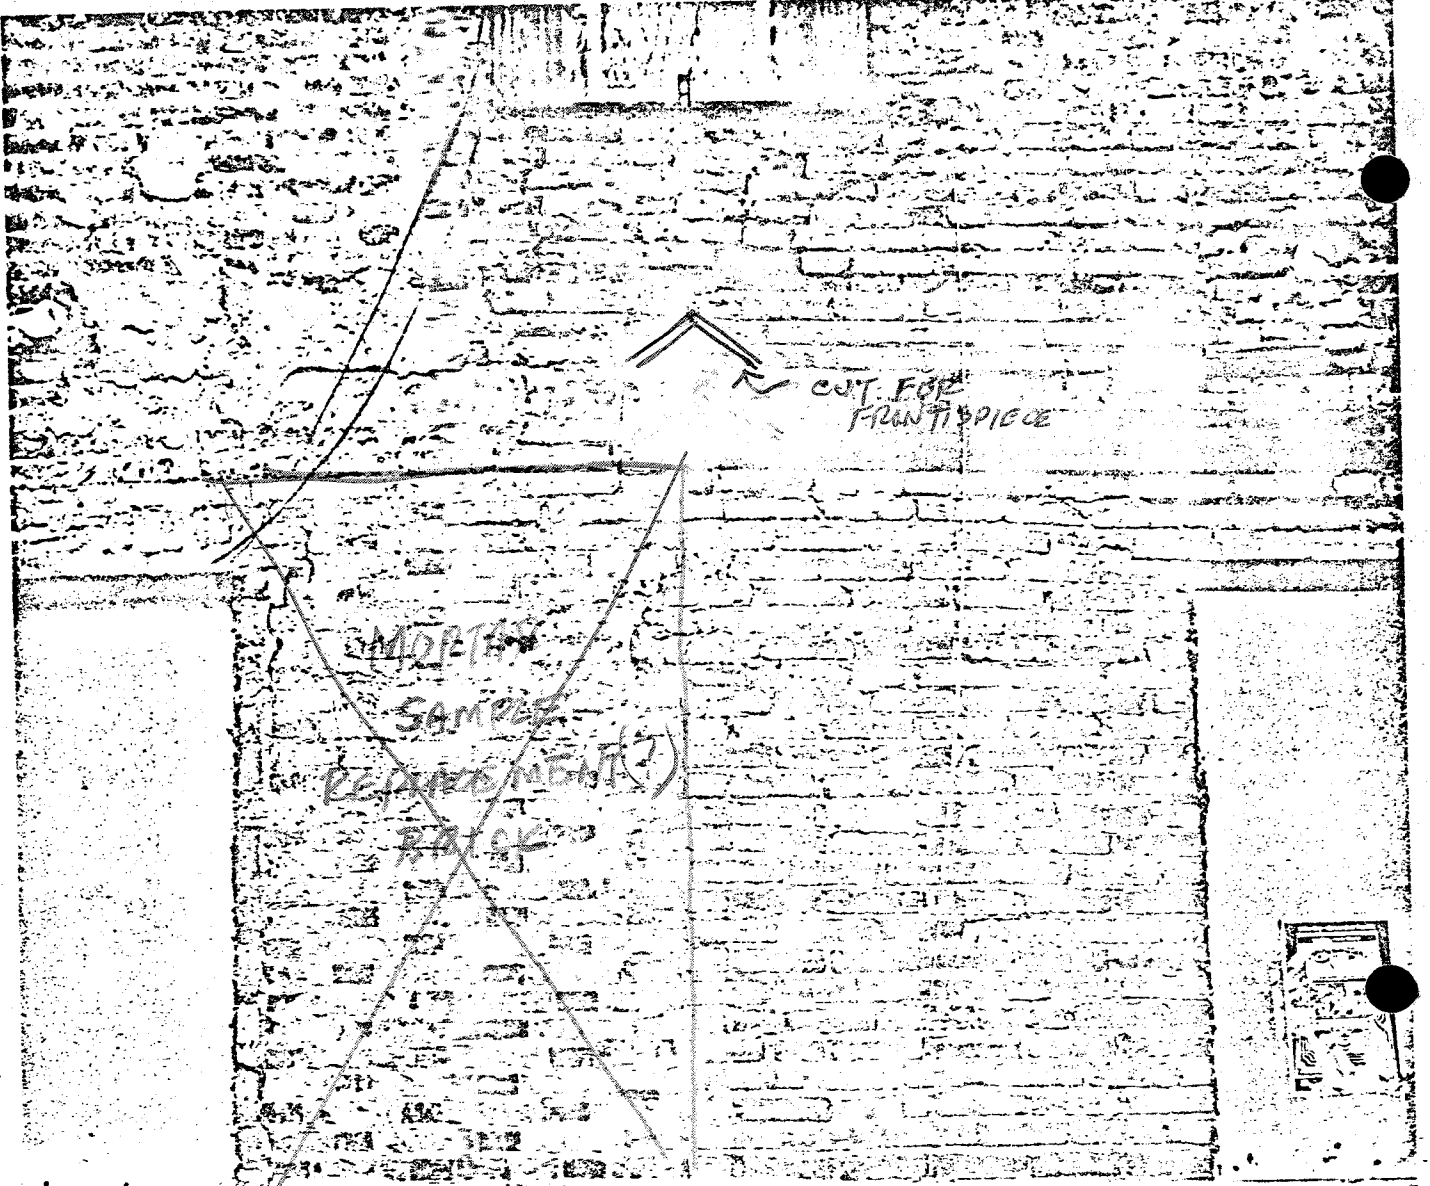 CUT FOR
FRONTISPIECE
MORTAR
SAMPLE
REPLACEMENT(?)
BRICK